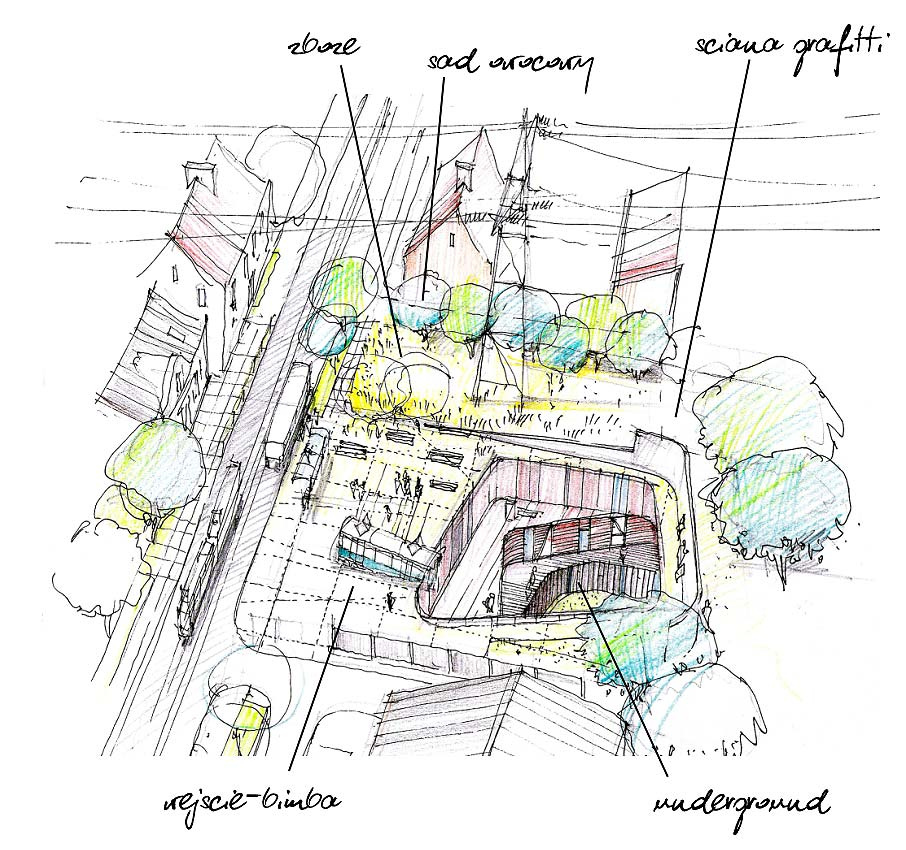 zboże
sad owocowy
sciana grafitti
wejscie-bimba
underground